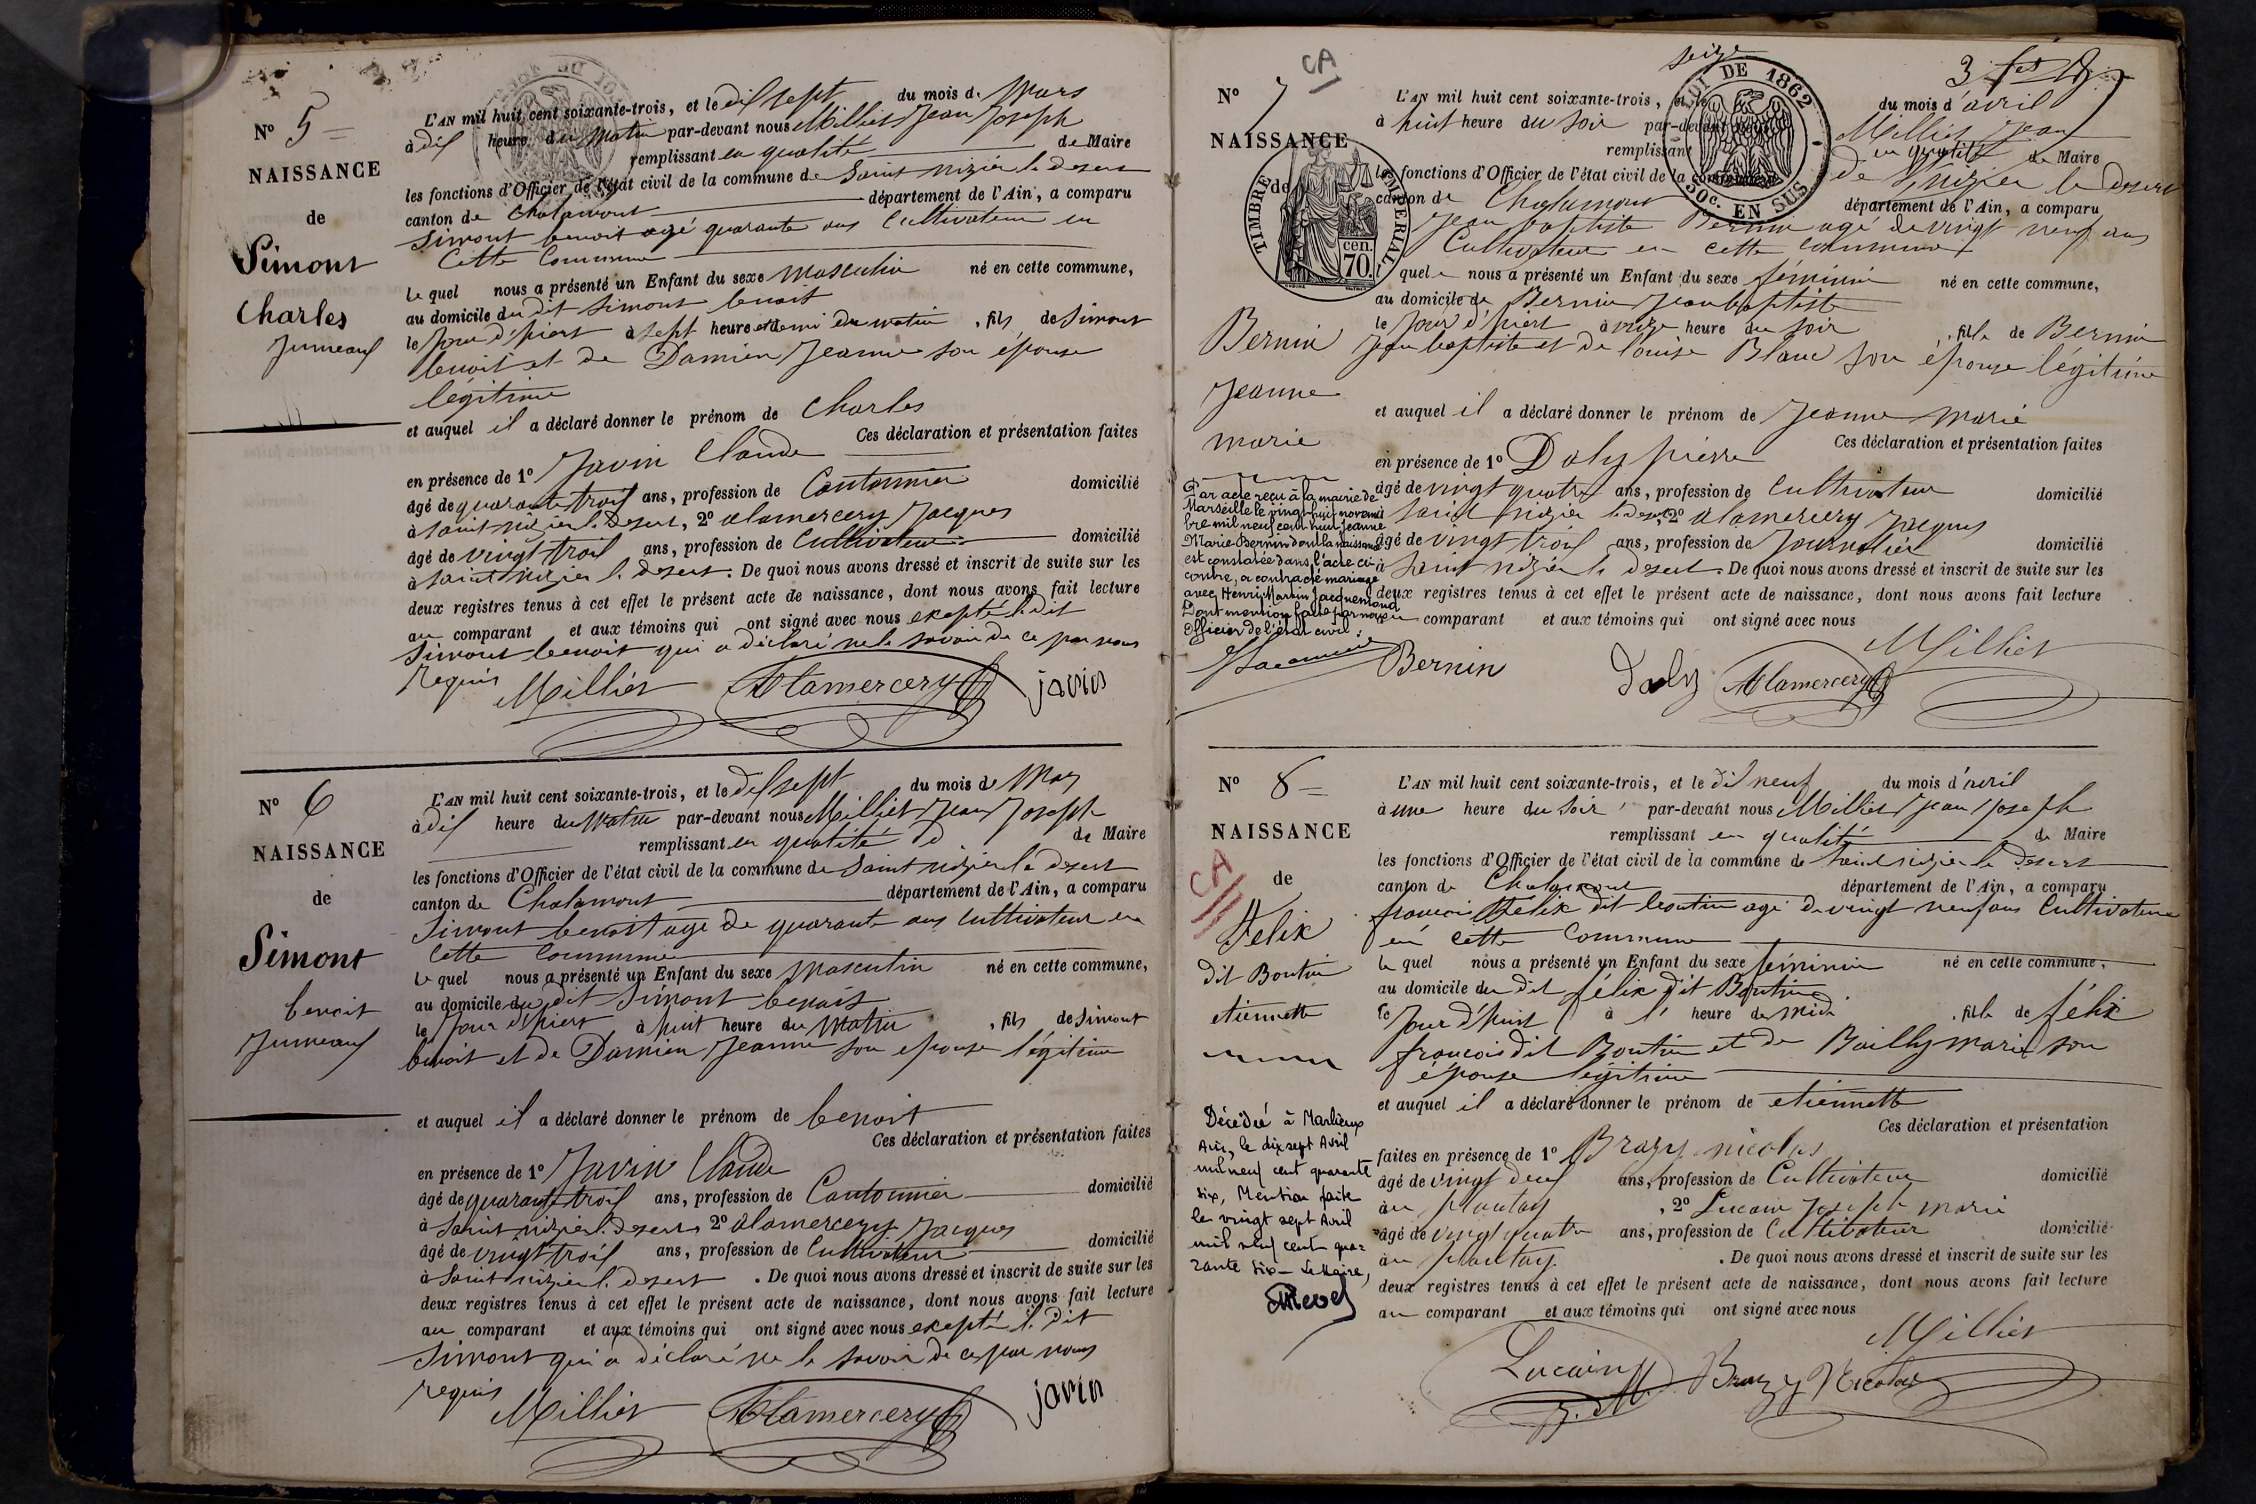 N° 5
NAISSANCE
de
Simont
Charles
Jumeaux
L'AN mil huit cent soixante-trois, et le dix sept du mois de Mars
à dix heure du Matin par-devant nous Milliet Jean Joseph
remplissant en qualité de Maire
les fonctions d'Officier de l'état civil de la commune de Saint nizier le desert
canton de Chalamont département de l'Ain, a comparu
Simont benoit agé quarante ans Cultivateur en
cette Commune
le quel nous a présenté un Enfant du sexe masculin né en cette commune,
au domicile du dit Simont benoit
le Jour d'hiert à sept heure et demi du matin, fils de Simont
benoit et de Damien Jeanne son épouse
légitime
et auquel il a déclaré donner le prénom de Charles
Ces déclaration et présentation faites
en présence de 1° Javin Claude
âgé de quarante trois ans, profession de Cantonnier domicilié
à Saint nizier le desert, 2° alamercery Jacques
âgé de vingt trois ans, profession de Cultivateur domicilié
à Saint nizier le desert. De quoi nous avons dressé et inscrit de suite sur les
deux registres tenus à cet effet le présent acte de naissance, dont nous avons fait lecture
au comparant et aux témoins qui ont signé avec nous exepté le dit
Simont benoit qui a déclaré ne le savoir de ce par nous
requis
Milliet Alamercery javin
N° 6
NAISSANCE
de
Simont
benoit
Jumeaux
L'AN mil huit cent soixante-trois, et le dix sept du mois de Mars
à dix heure du Matin par-devant nous Milliet Jean Joseph
remplissant en qualité d de Maire
les fonctions d'Officier de l'état civil de la commune de Saint nizier le desert
canton de Chalamont département de l'Ain, a comparu
Simont benoit agé de quarante ans cultivateur en
cette commune
le quel nous a présenté un Enfant du sexe masculin né en cette commune,
au domicile du dit Simont benoit
le Jour d'hiert à huit heure du Matin, fils de Simont
benoit et de Damien Jeanne son epouse légitime
et auquel il a déclaré donner le prénom de benoit
Ces déclaration et présentation faites
en présence de 1° Javin Claude
âgé de quarante trois ans, profession de Cantonnier domicilié
à Saint nizier le desert 2° alamercery Jacques
âgé de vingt trois ans, profession de Cultivateur domicilié
à Saint nizier le desert. De quoi nous avons dressé et inscrit de suite sur les
deux registres tenus à cet effet le présent acte de naissance, dont nous avons fait lecture
au comparant et aux témoins qui ont signé avec nous exepté le dit
Simont qui a déclaré ne le savoir de ce par nous
requis
Milliet Alamercery javin
CA
N° 7
NAISSANCE
de
TIMBRE IMPERIAL
cen. 70.
LOI DE 1862
50c. EN SUS
Bernin
Jeanne
marie
Par acte reçu à la mairie de
Marseille le vingt huit novem
bre mil neuf cent huit Jeanne
Marie Bernin dont la naissance
est constatée dans l'acte ci-
contre, a contracté mariage
avec Henri Martin Jacquemond
Dont mention faite par nous
officier de l'état civil.
seize
L'AN mil huit cent soixante-trois, et le du mois d'avril
à huit heure du soir par-devant nous Milliet Jean
remplissant en qualité de Maire
les fonctions d'Officier de l'état civil de la commune de St nizier le desert
canton de Chalamont département de l'Ain, a comparu
Jean baptiste Bernin agé de vingt neuf ans
Cultivateur en cette commune
quel nous a présenté un Enfant du sexe féminin né en cette commune,
au domicile de Bernin Jean baptiste
le Jour d'hiert à onze heure du soir, fille de Bernin
Jean baptiste et de Louise Blanc son épouse légitime
et auquel il a déclaré donner le prénom de Jeanne Marie
Ces déclaration et présentation faites
en présence de 1° Doly pierre
âgé de vingt quatre ans, profession de Cultivateur domicilié
à Saint nizier le desert, 2° alamercery Jacques
âgé de vingt trois ans, profession de Journalier domicilié
à Saint nizier le desert. De quoi nous avons dressé et inscrit de suite sur les
deux registres tenus à cet effet le présent acte de naissance, dont nous avons fait lecture
au comparant et aux témoins qui ont signé avec nous
Milliet
Bernin Doly Alamercery
N° 8
NAISSANCE
CA
de
Felix
dit Boutin
etiennette
Décédée à Marlieux
Ain, le dix sept Avril
mil neuf cent quarante
six, Mention faite
le vingt sept Avril
mil neuf cent qua-
rante six - Le Maire,
L'AN mil huit cent soixante-trois, et le dix neuf du mois d'avril
à une heure du Soir par-devant nous Milliet Jean Joseph
remplissant en qualité de Maire
les fonctions d'Officier de l'état civil de la commune de Saint nizier le desert
canton de Chalamont département de l'Ain, a comparu
francois Felix dit boutin agé de vingt neuf ans Cultivateur
en cette Commune
le quel nous a présenté un Enfant du sexe féminin né en cette commune,
au domicile du dit félix dit Boutin
le Jour d'hiert à l' heure de midi, fille de félix
francois dit Boutin et de Bailly marie son
épouse légitime
et auquel il a déclaré donner le prénom de etiennette
Ces déclaration et présentation
faites en présence de 1° Brazy nicolas
âgé de vingt deux ans, profession de Cultivateur domicilié
au plantay, 2° Lucain Joseph marie
âgé de vingt quatre ans, profession de Cultivateur domicilié
au plantay. De quoi nous avons dressé et inscrit de suite sur les
deux registres tenus à cet effet le présent acte de naissance, dont nous avons fait lecture
au comparant et aux témoins qui ont signé avec nous
Milliet
Lucain J. M. Brazy Nicolas